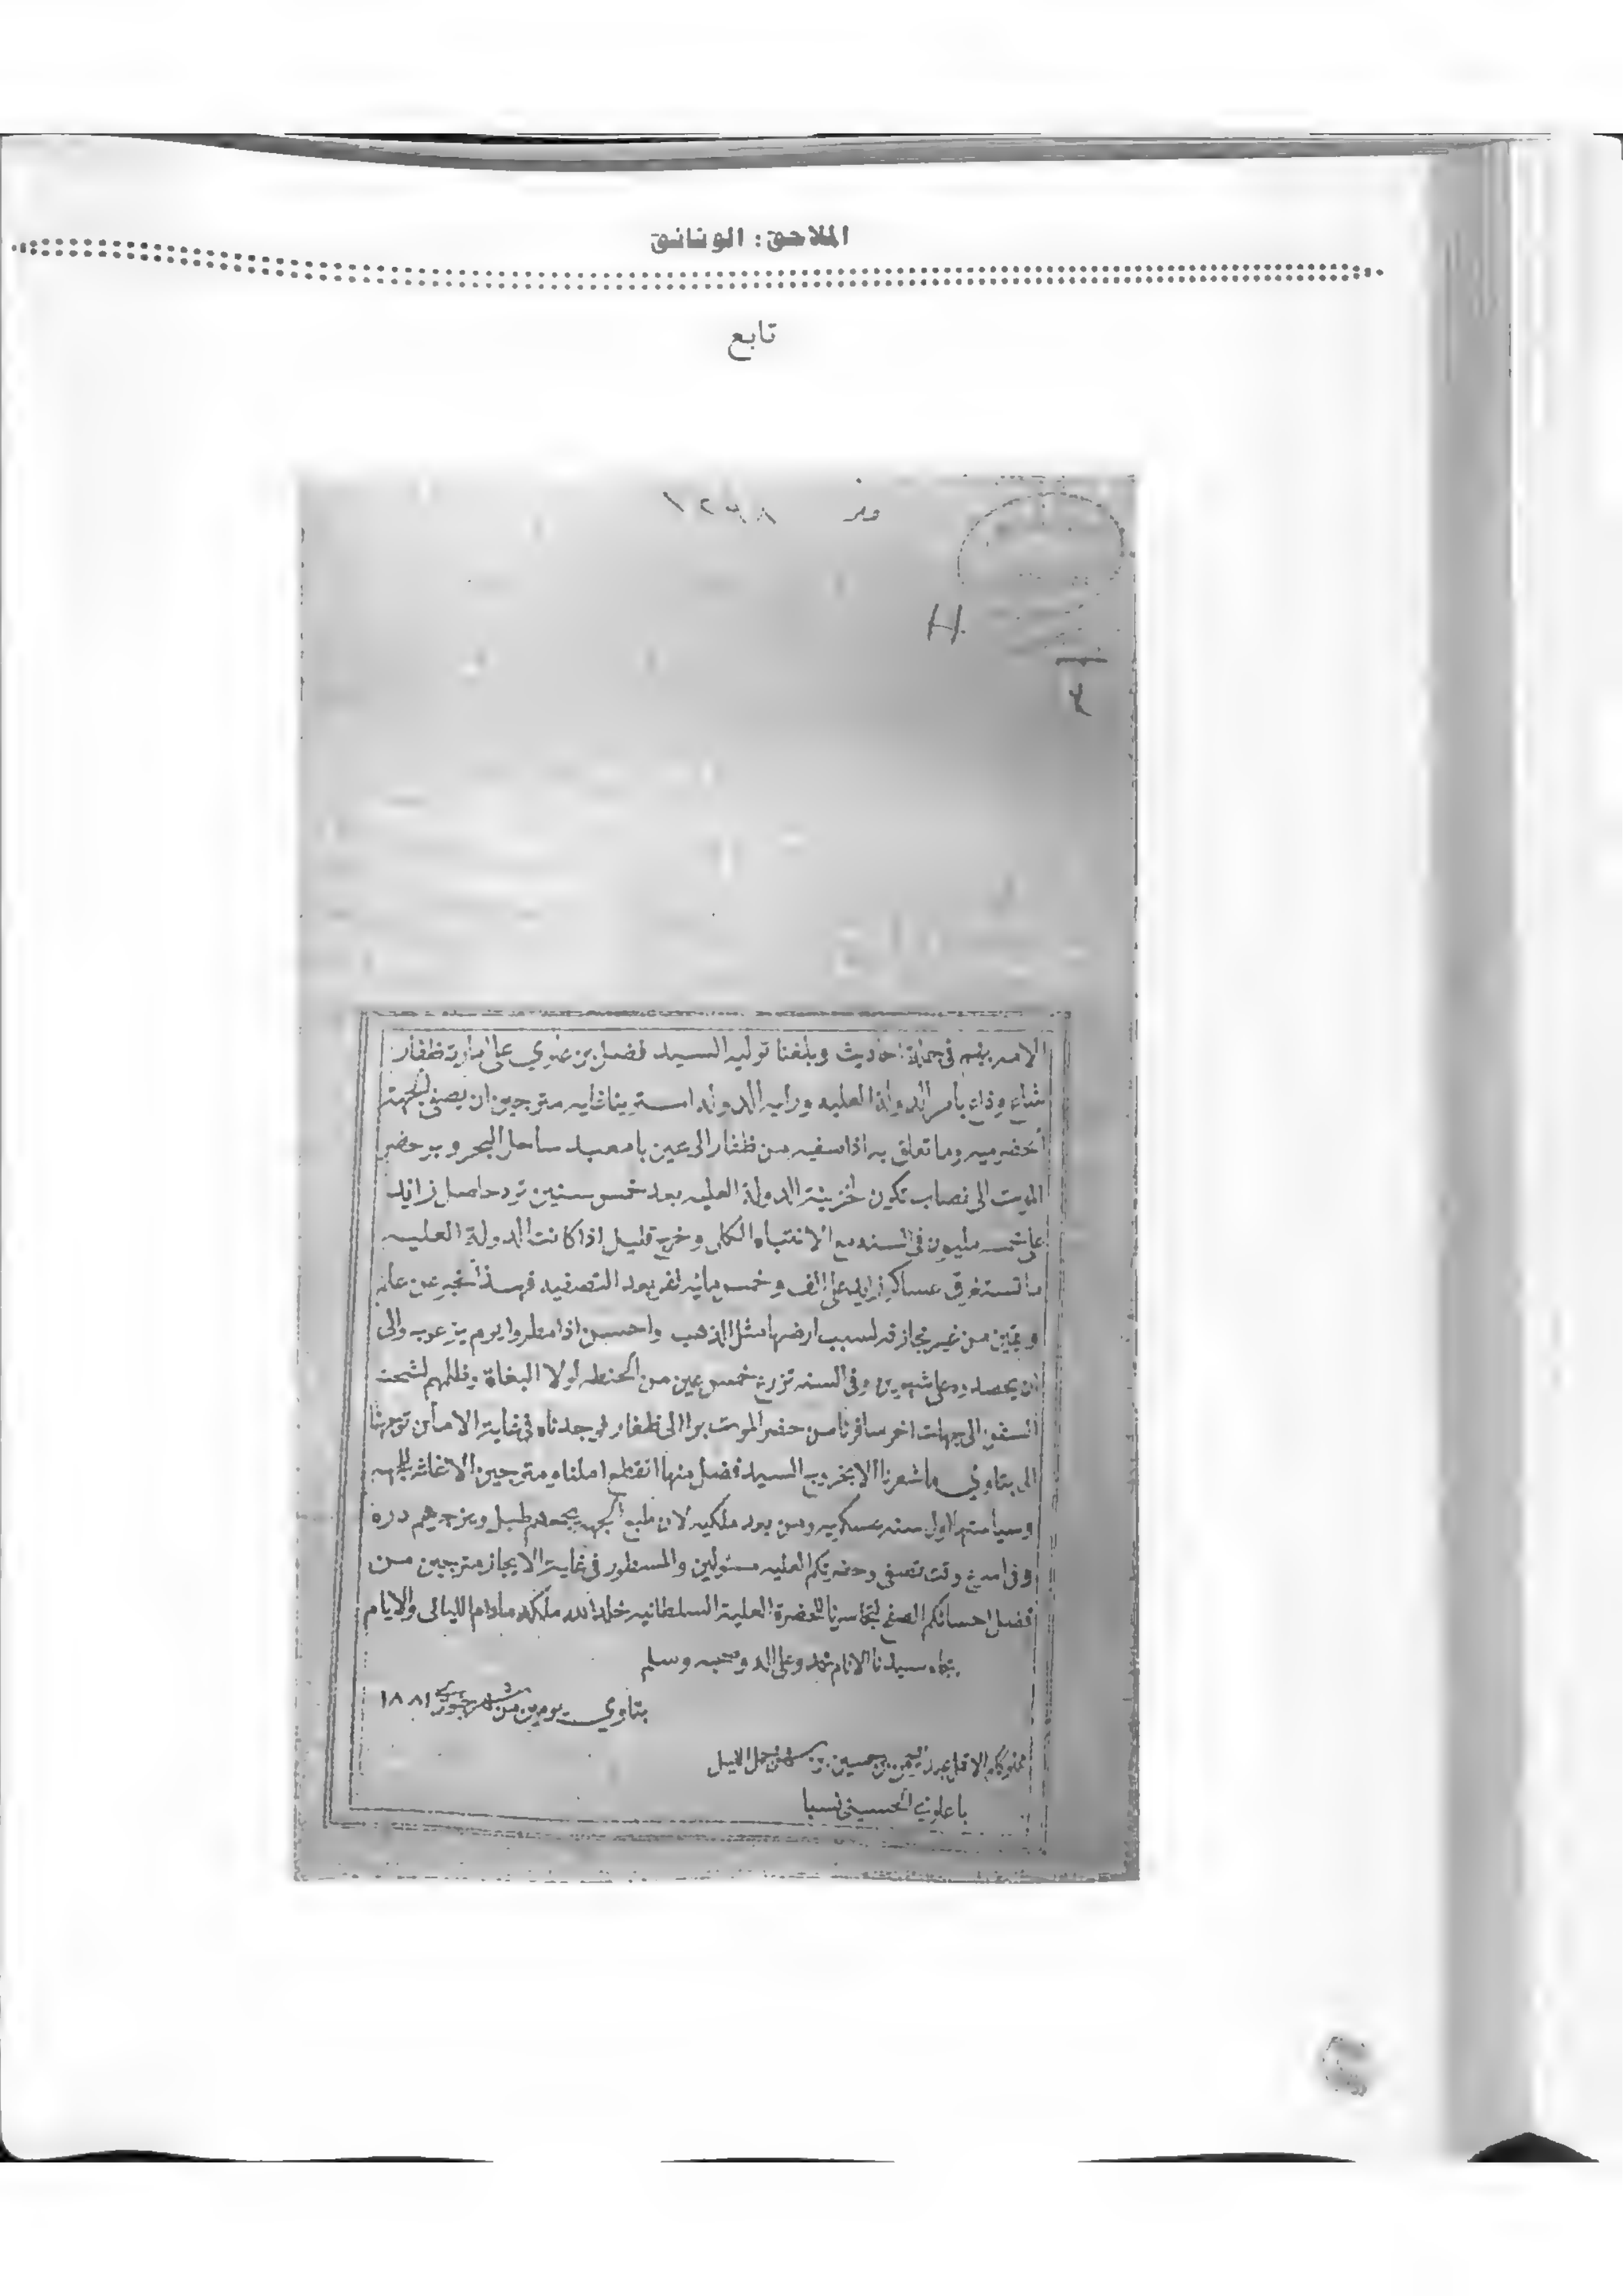 الملاحق : الوثائق
تابع
١٢٦٨
H
الامر بينهم في جملة احاديث وبلغنا تولية السيد فضل بن علوي على امارت ظفار
شاع وذاع بامر الدولة العليه وراية الدوله مترجين ان يصفي الجهة
الحضرميه وما تعلق به اذا سفيه من ظفار الى عين بامعبد ساحل البحر وبر حضر
الموت الى نصاب تكون لخزينة الدولة العليه بعد خمس سنين ترد حاصل زايد
على خمسه مليون في السنه مع الانتباه الكلي وخرج قليل اذا كانت الدولة العليه
ما تستغرق عساكر زايد على الف وخمس مائه نفر بعد التصفيه فهذا نخبر عن علم
ويقين من غير مجازفه لسبب ارضها مثل الذهب واحسن اذا مطروا يوم يزعوبه والى
ان يحصدوه على شهرين وفي السنه تزرع خمس من الحنطه لولا البغاة وظلمهم لشحنت
السفن الى جهات اخر سافرنا من حضر الموت برا الى ظفار فوجدناه في غاية الامان توجهنا
الى بتاوي ما شعرنا الا بخروج السيد فضل منها انقطع املنا مترجين الاغاثه للجهه
وسياستهم لاول سنه عسكريه ومن بعد ملكيه لان طبع الجهه يجمعهم طبل ويزجيهم دره
وفي اسرع وقت تصفى وحضرتكم العليه مسئولين والمسطور في غاية الايجاز مترجيين من
فضل احسانكم الصفح لتجاسرنا للحضرة العلية السلطانيه خلد الله ملكه ما دام الليالي والايام
بجاه سيدنا الانام محمد وعلى اله وصحبه وسلم
بتاوي يومين من شهر ١٨٨١
مملوككم الاقل عبد الرحمن بن حسين بن سهل جمل الليل
باعلوي الحسيني نسبا